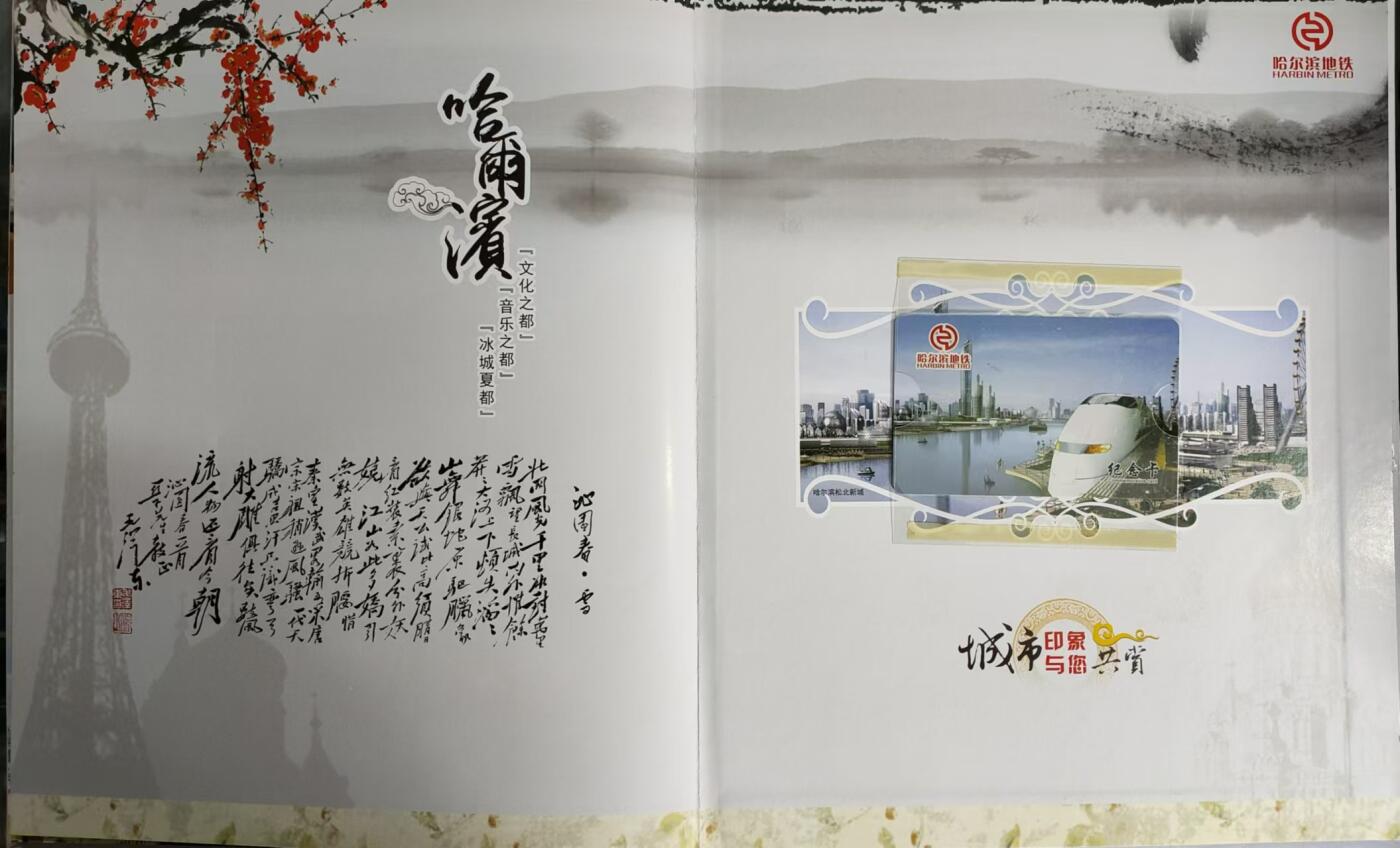 哈爾濱
『文化之都』
『音乐之都』
『冰城夏都』
沁園春·雪
北国風光千里冰封萬里
雪飘望長城内外惟餘
莽莽大河上下頓失滔滔
山舞銀蛇原馳臘象
欲与天公試比高須晴日
看红装素裹分外妖
娆江山如此多嬌引
無数英雄競折腰惜
秦皇漢武略輸文采唐
宗宋祖稍逊風騷一代天
驕成吉思汗只識彎弓
射大雕俱往矣数風
流人物还看今朝
沁園春一首
教正
毛泽东
哈尔滨地铁
HARBIN METRO
哈尔滨地铁
HARBIN METRO
纪念卡
哈尔滨松北新城
城市印象与您共赏